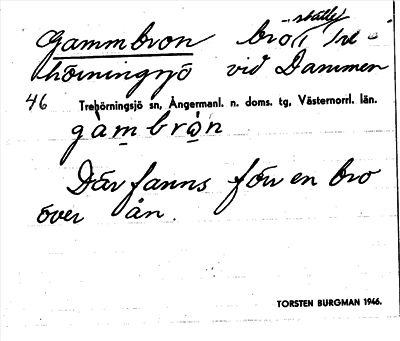 Gammbron bro(ställe) i Tre-
hörningsjö vid Dammen
46 Trehörningsjö sn, Ångermanl. n. doms. tg, Västernorrl. län.
gàm brọ́n
Där fanns förr en bro
över ån.
TORSTEN BURGMAN 1946.